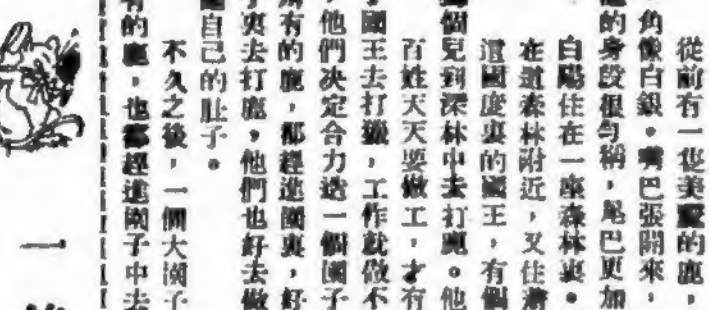 從前有一隻美麗的鹿，
角像白銀。嘴巴張開來，
的身段很勻稱，尾巴更加
白陽住在一座森林裏。
在這森林附近，又住着
這國度裏的國王，有個
個兒到深林中去打鹿。他
百姓天天要做工，才有
國王去打獵，工作就做不
，他們決定合力造一個園子
有的鹿，都趕進園裏，好
裏去打鹿。他們也好去做
自己的肚子。
不久之後，一個大園子
有的鹿，也都趕進園子中去
一